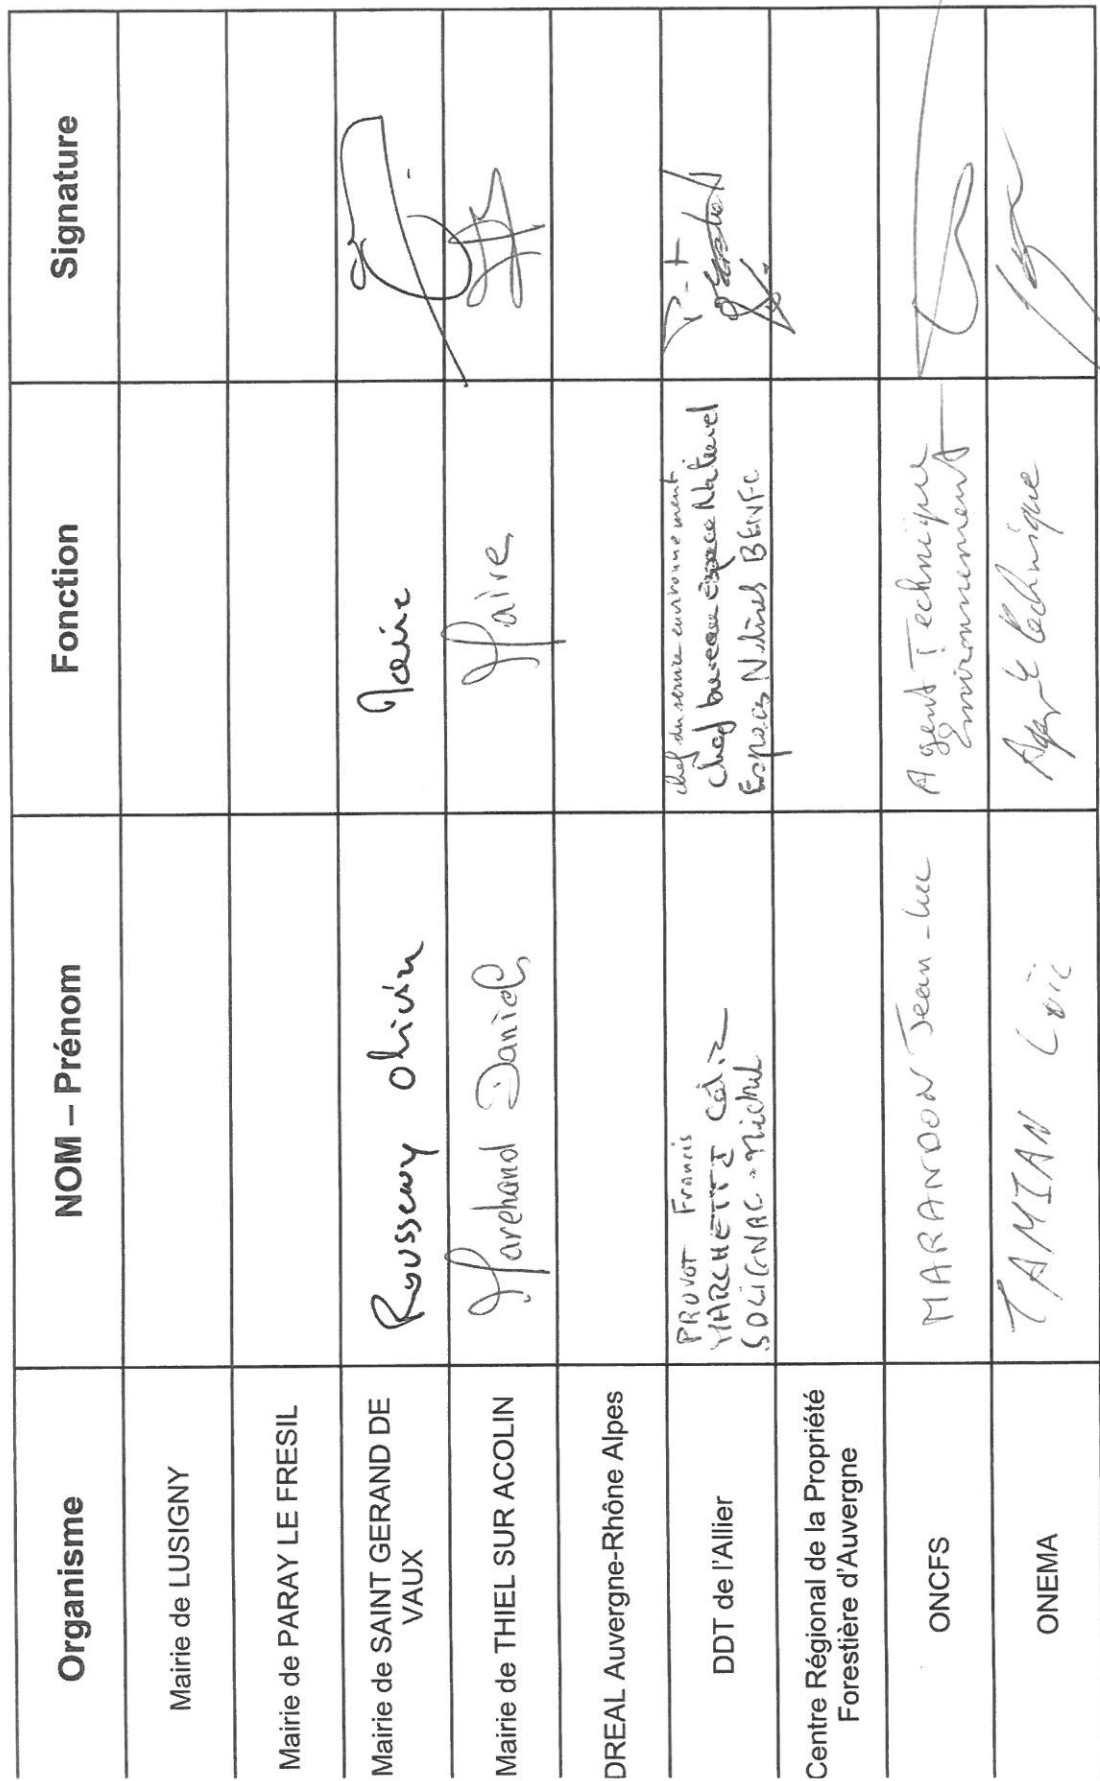 Organisme
NOM – Prénom
Fonction
Signature
Mairie de LUSIGNY
Mairie de PARAY LE FRESIL
Mairie de SAINT GERAND DE
VAUX
Rousseau Olivier
Maire
Mairie de THIEL SUR ACOLIN
Marchand Daniel
Maire
DREAL Auvergne-Rhône Alpes
DDT de l'Allier
PRUVOT Francis
MARCHETTI
SOLIGNAC Michel
chef du service environnement
chef bureau espace Naturel
Espaces
Centre Régional de la Propriété
Forestière d'Auvergne
ONCFS
MARANDON Jean-Luc
Agent Technique
Environnement
ONEMA
TAMIAN Loïc
Agent technique